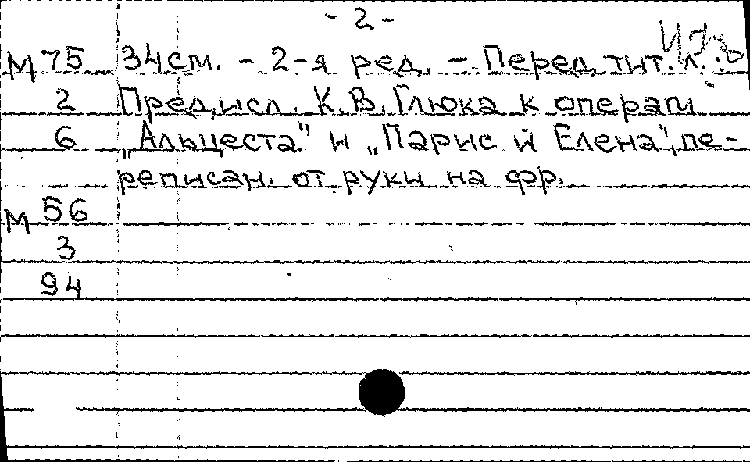 - 2 -
М 75 34см. - 2-я ред. - Перед тит. л.:
2 Предисл. К.В. Глюка к операм
6 „Альцеста" и „Парис и Елена", пе-
реписан. от руки на фр.
М 56
3
94